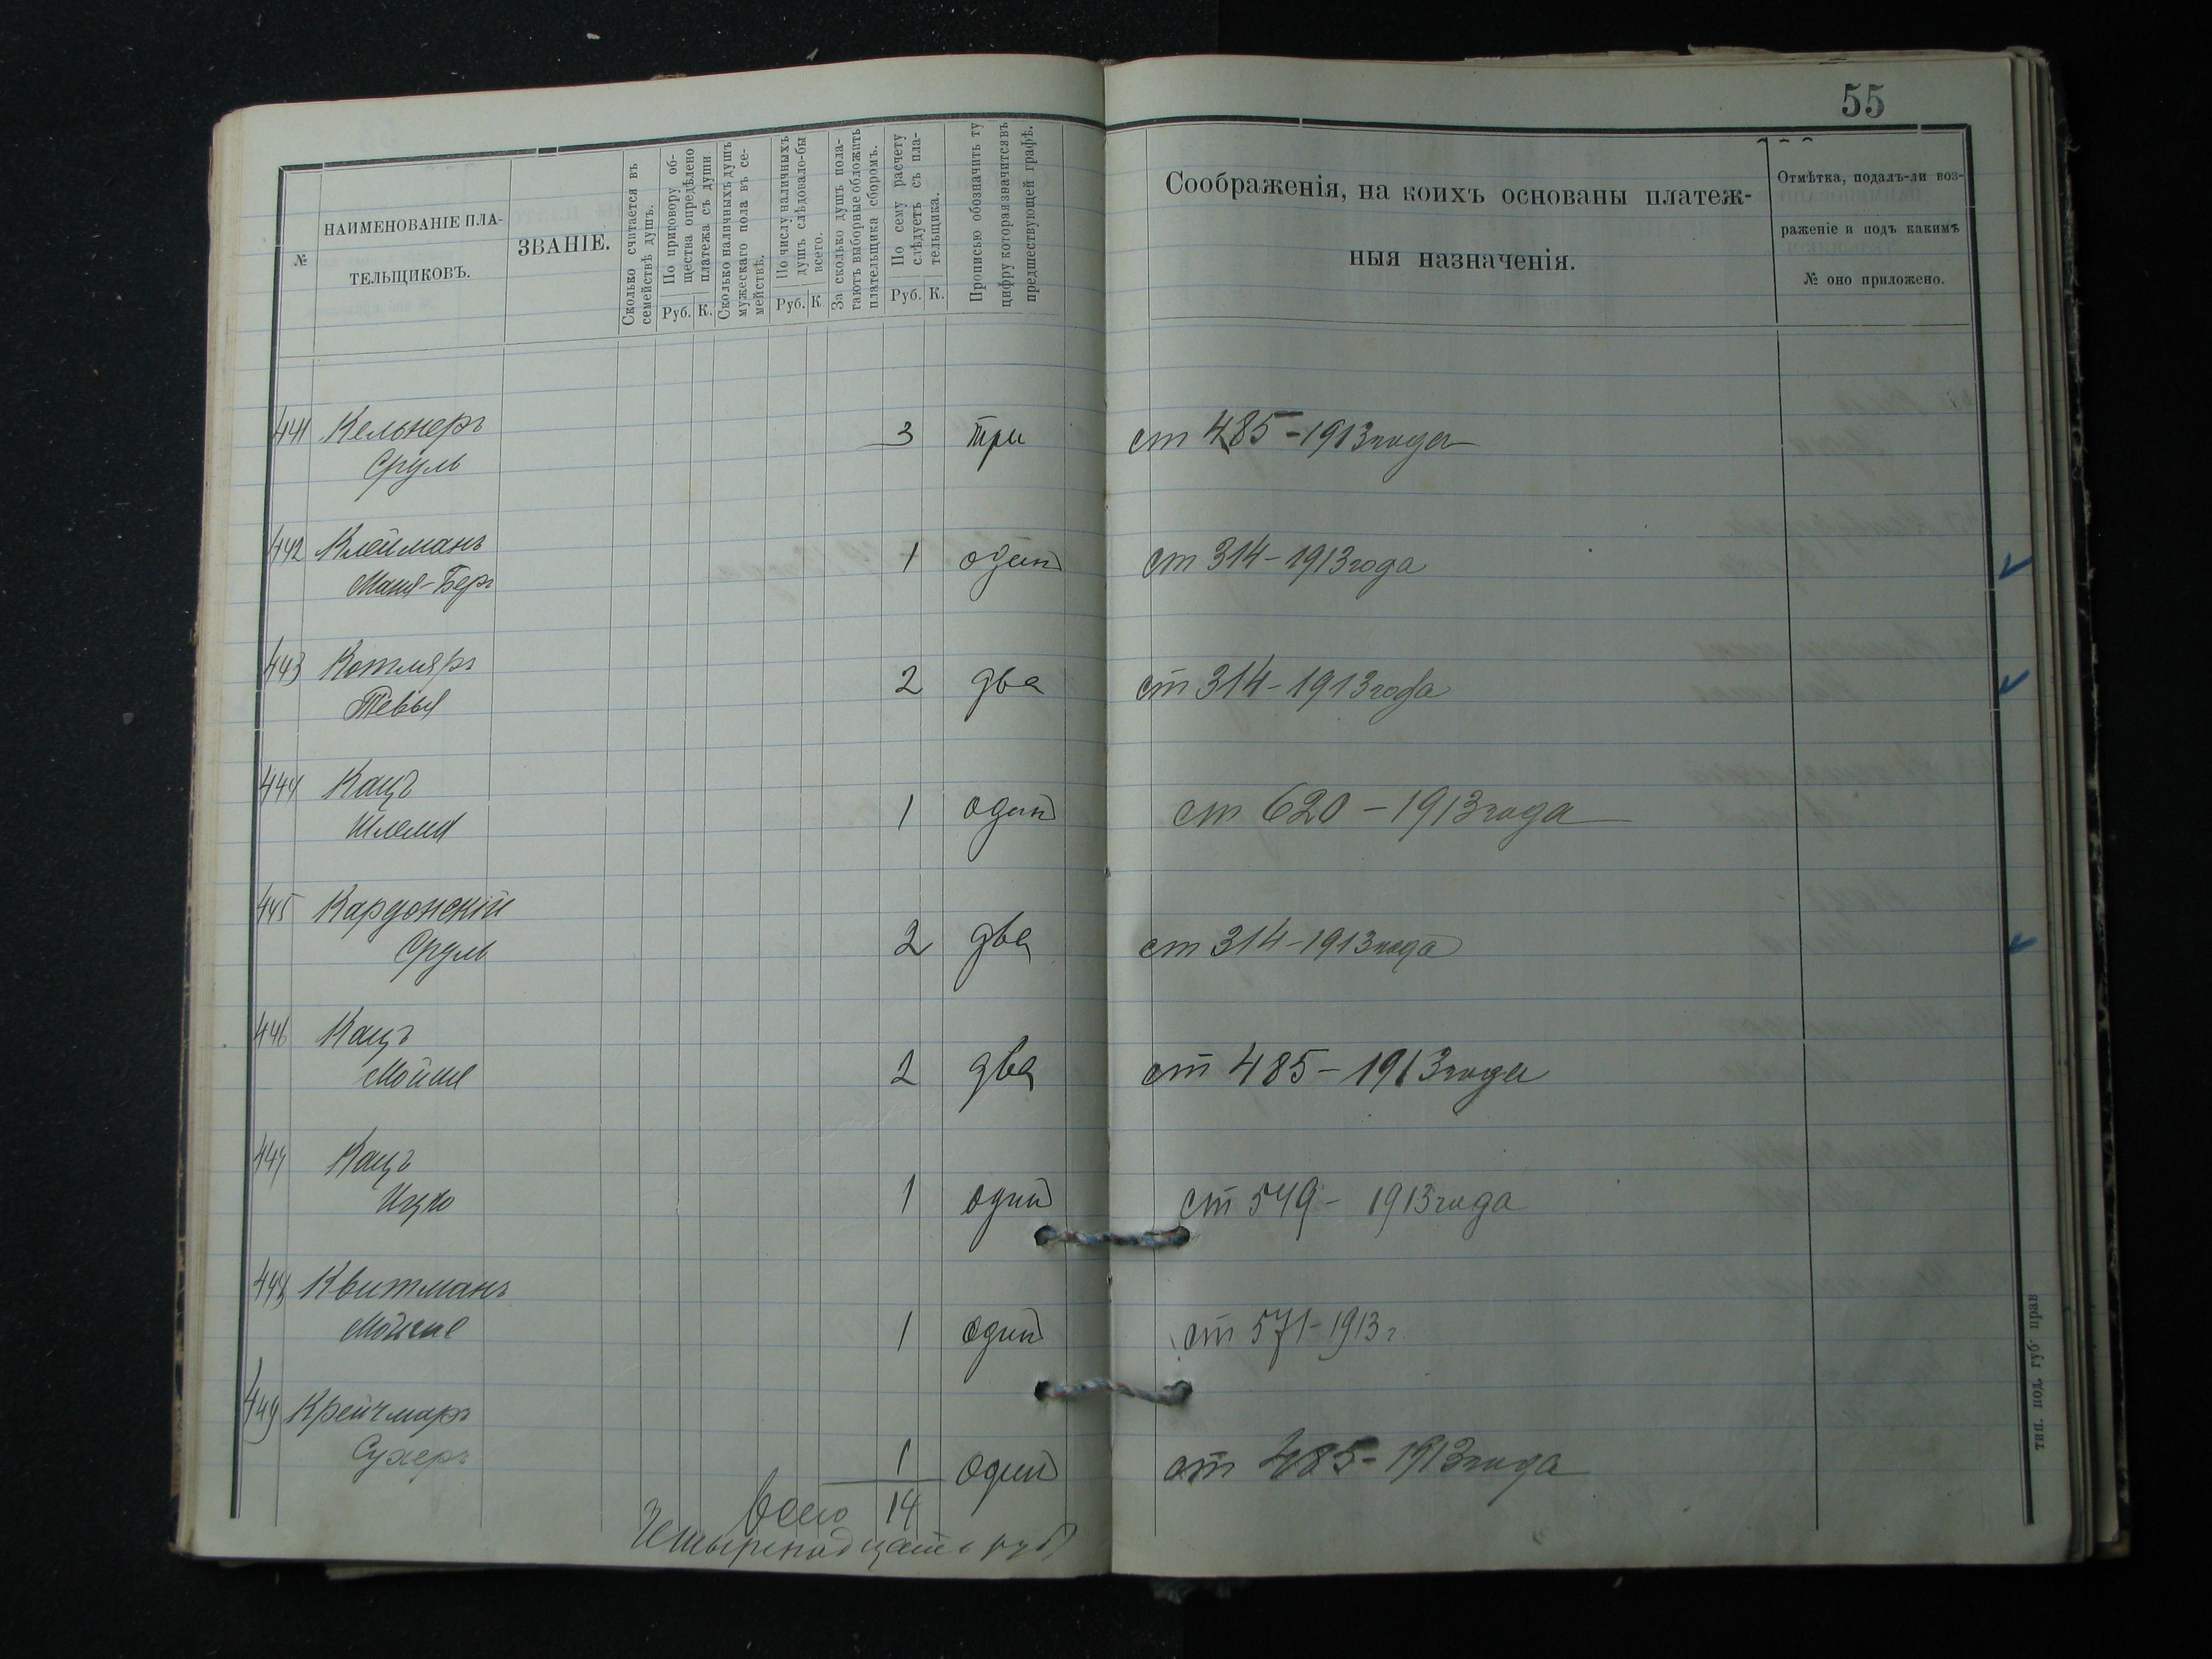 55
№
НАИМЕНОВАНІЕ ПЛА-
ТЕЛЬЩИКОВЪ.
ЗВАНІЕ.
Сколько считается въ
семействѣ душъ.
По приговору об-
щества опредѣлено
платежа съ души
Руб. К.
Сколько наличныхъ душъ
мужескаго пола въ се-
мействѣ.
По числу наличныхъ
душъ слѣдовало-бы
всего.
Руб. К
За сколько душъ пола-
гаютъ выборные обложить
плательщика сборомъ.
По сему расчету
слѣдуетъ съ пла-
тельщика.
Руб. К.
Прописью обозначить ту
цифру которая значится въ
предшествующей графѣ.
Соображенія, на коихъ основаны платеж-
ныя назначенія.
Отмѣтка, подалъ-ли воз-
раженіе и подъ какимъ
№ оно приложено.
441 Кельнеръ
Сруль 3 три ст 485-1913 года
442 Клейманъ
Маня-Беръ 1 один ст 314-1913 года
443 Котляръ
Тевья 2 два ст 314-1913 года
444 Кацъ
Шлема 1 один ст 620-1913 года
445 Кардонскій
Сруль 2 два ст 314-1913 года
446 Кацъ
Мойше 2 два ст 485-1913 года
447 Кацъ
Ицко 1 один ст 549- 1913 года
448 Квитманъ
Мойше 1 один ст 571-1913 г
449 Крейчмаръ
Сухеръ 1 один ст 485-1913 года
Всего 14
Четырнадцать руб
тип. под. губ. прав